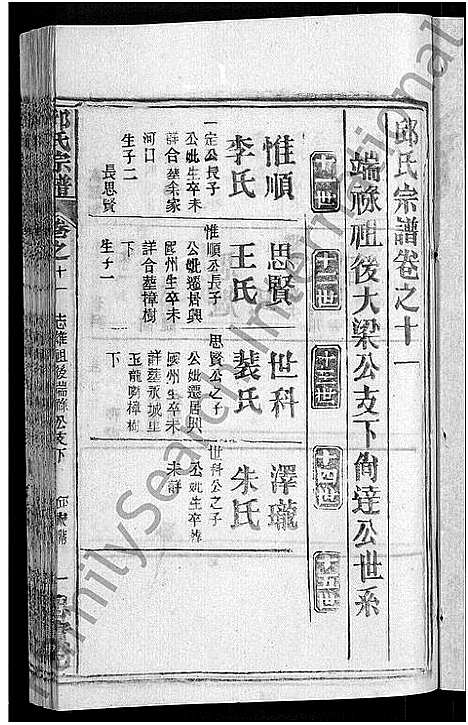 邱氏宗譜卷之十一
端祿祖後大梁公支下尙達公世系
十一世
十二世
十三世
十四世
十五世
惟順
李氏
一定公長子
公妣生卒未
詳合塟朱家
河口
生子二
長思賢
思賢
王氏
惟順公長子
公妣遷居興
國州生卒未
詳合塟樟樹
下
生子一
世科
裴氏
思賢公之子
公妣遷居興
國州生卒未
詳塟永城里
玉龍劉樟樹
下
澤瓏
朱氏
世科公之子
公妣生卒俱
未詳
邱氏宗譜
卷之十一
志雄祖後端祿公支下
一
FamilySearch International